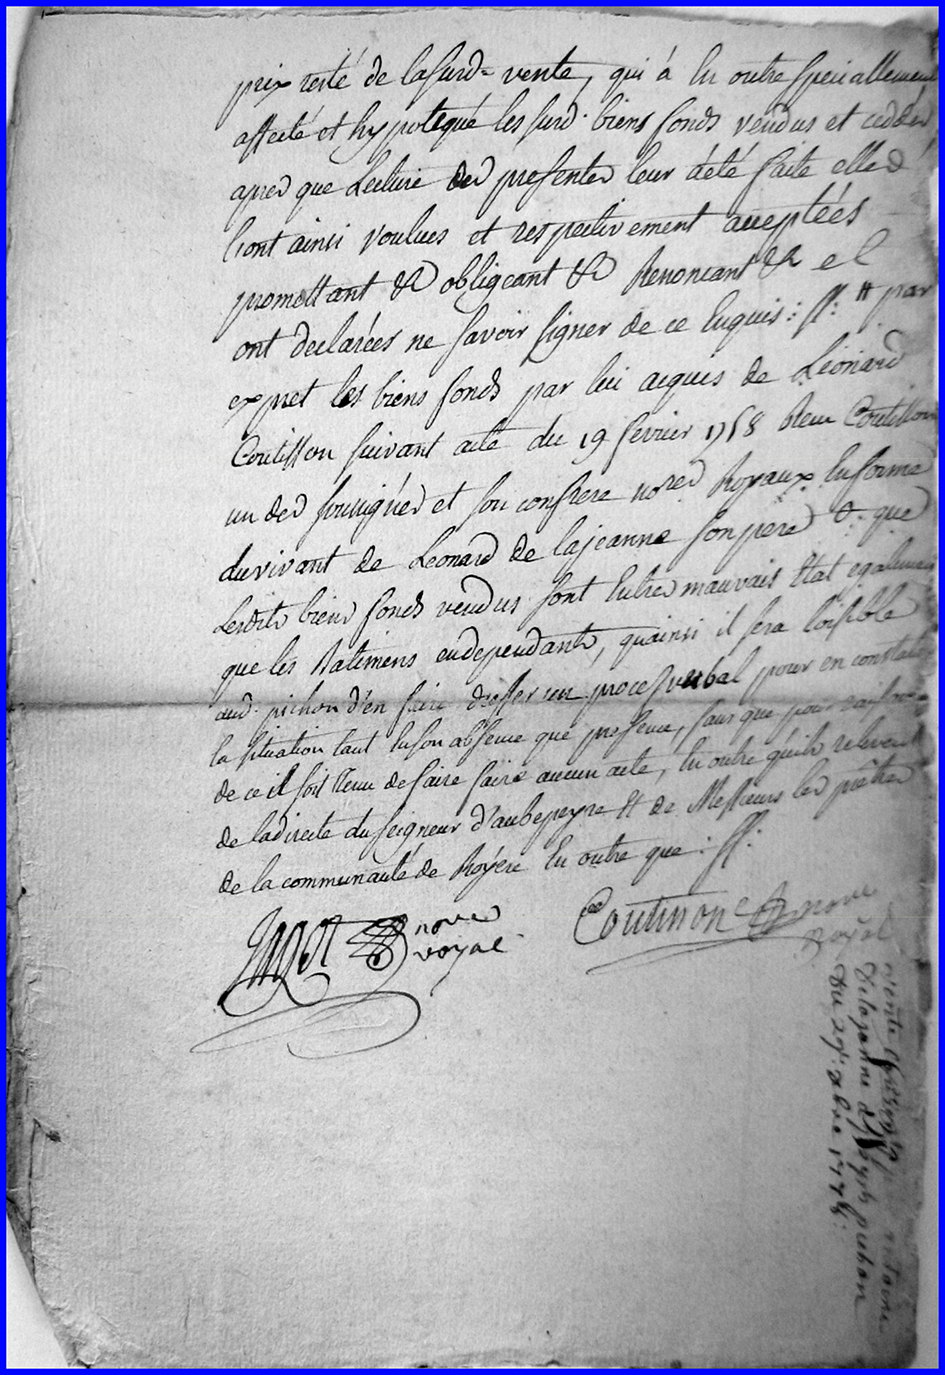 prix resté de lasusd= vente, qui á En outre specialleme
affecté et hypotequé les susd. biens fonds vendus et cedded
apred que Lecture ded presented leur á été faite elled
lont ainsi voulues et respectivement acceptées
promettant &c obligeant &c Renoncant &c el
ont declarées ne savoir signer de ce Enquis: ff: # par
exprret les biens fonds par lui acquis de Léonard
Coutisson suivant acte du 19 fevrier 1758 Reçu Coutisson
un ded soussignéd et son confrere nored Royaux En forme
du vivant de Leonard de lajeanne son pere &: que
Lesdits biend fonds vendus sont Entred mauvais Etat egalemen
que les Batimens endependants, quainsi il sera loisible
aud. pichon d'en faire dresser un procesverbal pour en constater
la situation tant Enson absence que presence, sans que pour
de ce il soit tenu de faire faire aucun acte, En outre quils relevent
de ladirecte du seigneur d'aubepeyre Et de Messieurs led prêtred
de la communauté de Royére En outre que: ff:
Jagot nore Coutisson nore
royal royal
vente
delajanne pichon
du 29e: xbre 177